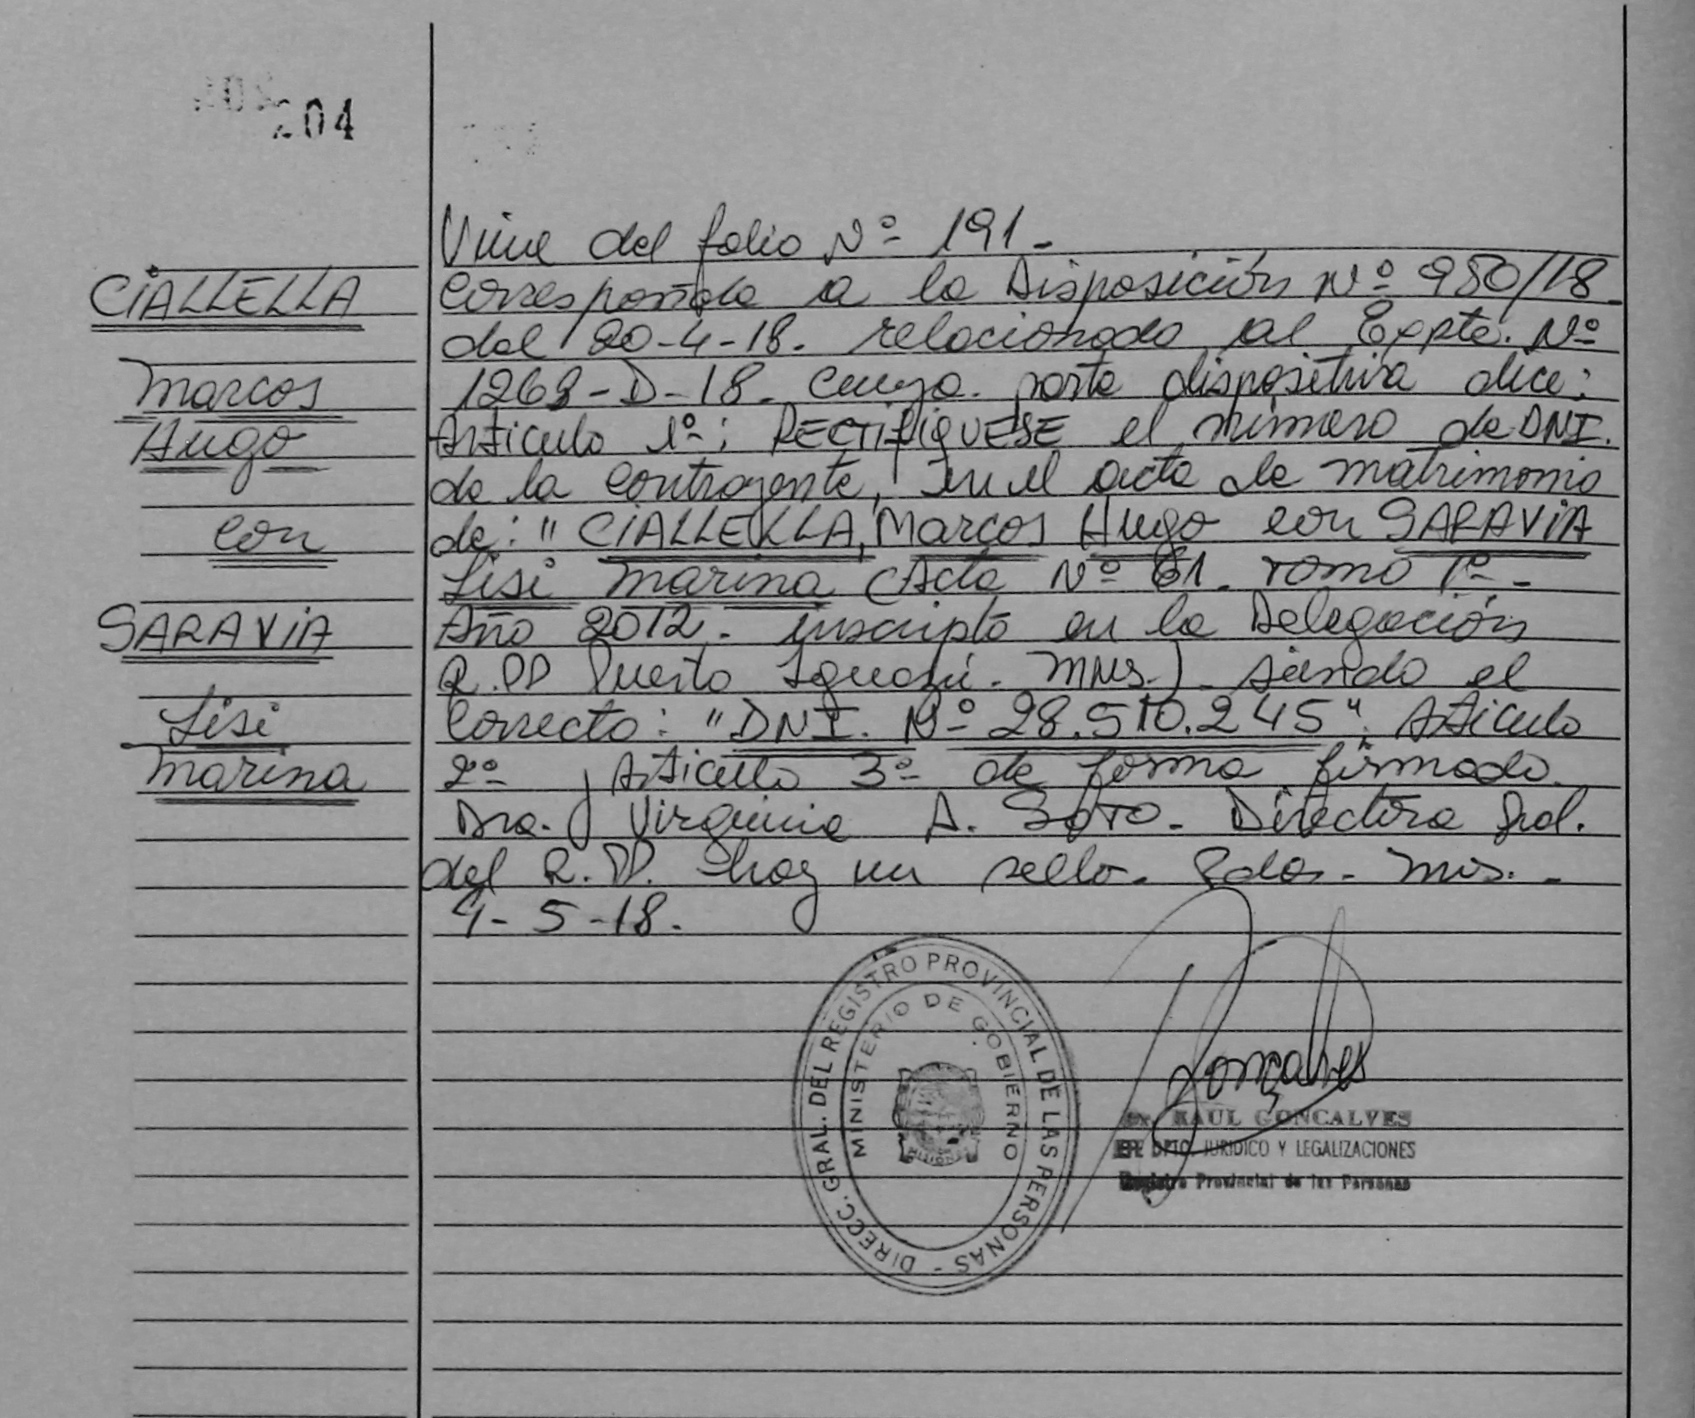 204
CIALLELLA
Marcos
Hugo
con
SARAVIA
Lisi
Marina
Viene del folio Nº 191.-
Corresponde a la Disposición Nº 980/18.
del 20-4-18. relacionada al Expte. Nº
1268-D-18. cuya parte dispositiva dice:
Articulo 1º: RECTIFIQUESE el número de DNI.
de la contrayente, en el acta de matrimonio
de: " CIALLELLA, Marcos Hugo con SARAVIA
Lisi Marina (Acta Nº 61. Tomo 1º.-
Año 2012. inscripta en la Delegación
R.PP Puerto Iguazú. Mnes.) siendo el
correcto: "DNI. Nº 28.510.245". Articulo
2º y Articulo 3º de forma firmado.
Dra. Virginia A. SOTO. Directora Gral.
del R.PP. hay un sello. Pdas. Mis.-
4-5-18.
DIRECC. GRAL. DEL REGISTRO PROVINCIAL DE LAS PERSONAS -
MINISTERIO DE GOBIERNO
MISIONES
Goncalves
Dr. RAUL GONCALVES
DPTO. JURIDICO Y LEGALIZACIONES
Registro Provincial de las Personas